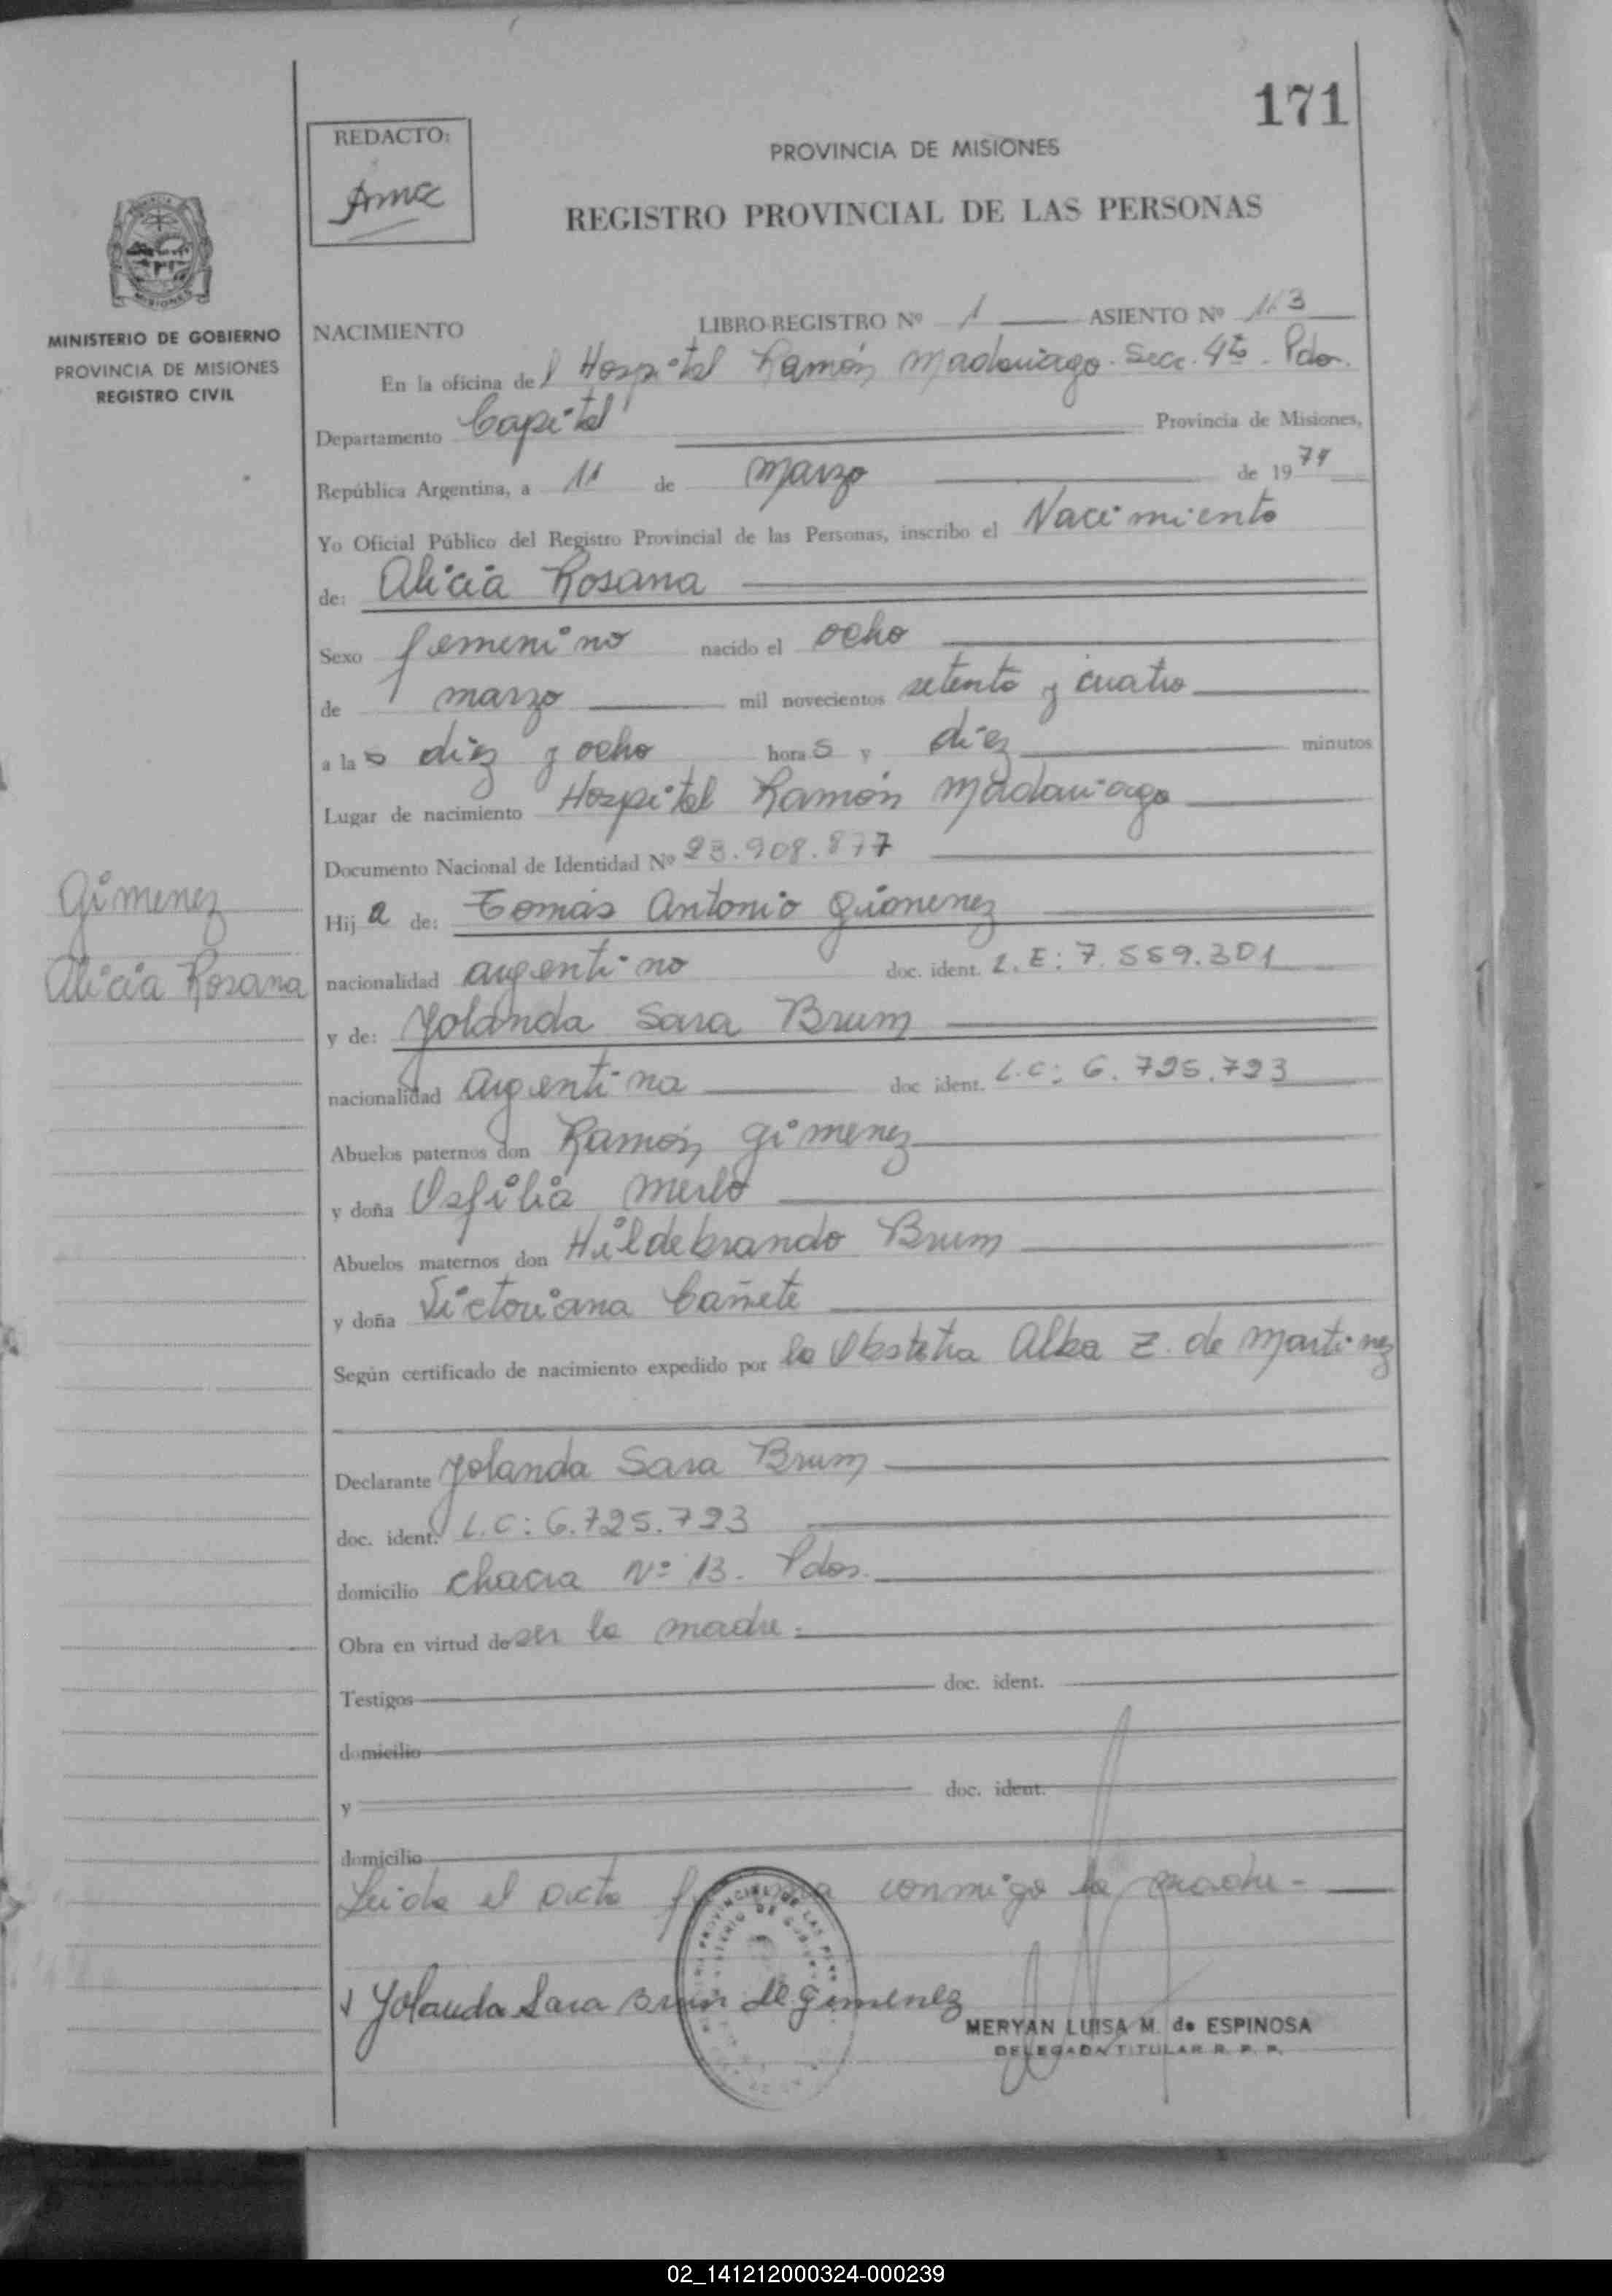 171
REDACTO:
Ama
PROVINCIA DE MISIONES
REGISTRO PROVINCIAL DE LAS PERSONAS
MINISTERIO DE GOBIERNO
PROVINCIA DE MISIONES
REGISTRO CIVIL
NACIMIENTO LIBRO REGISTRO Nº 1 ASIENTO Nº
En la oficina del Hospital Ramón Madariaga. Secc. 4ta. Pdas.
Departamento Capital Provincia de Misiones,
República Argentina, a 11 de marzo de 1974
Yo Oficial Público del Registro Provincial de las Personas, inscribo el Nacimiento
de: Alicia Rosana
Sexo femenino nacido el ocho
de marzo mil novecientos setenta y cuatro
a las diez y ocho horas y diez minutos
Lugar de nacimiento Hospital Ramón Madariaga
Documento Nacional de Identidad Nº 23.908.877
Gimenez
Alicia Rosana
Hija de: Tomás Antonio Gimenez
nacionalidad argentino doc. ident. L.E: 7.559.301
y de: Yolanda Sara Brum
nacionalidad argentina doc ident. L.C: 6.725.723
Abuelos paternos don Ramón Gimenez
y doña Osfilia Merlo
Abuelos maternos don Hildebrando Brum
y doña Victoriana Cañete
Según certificado de nacimiento expedido por la Obstetra Alba Z. de Martinez
Declarante Yolanda Sara Brum
doc. ident. L.C: 6.725.723
domicilio chacra Nº 13. Pdas.
Obra en virtud de ser la madre.
Testigos doc. ident.
domicilio
y doc. ident.
domicilio
Leida el acta conmigo la madre-
Yolanda Sara Brum de Gimenez
MERYAN LUISA M. de ESPINOSA
DELEGADA TITULAR R. P. P.
02_141212000324-000239